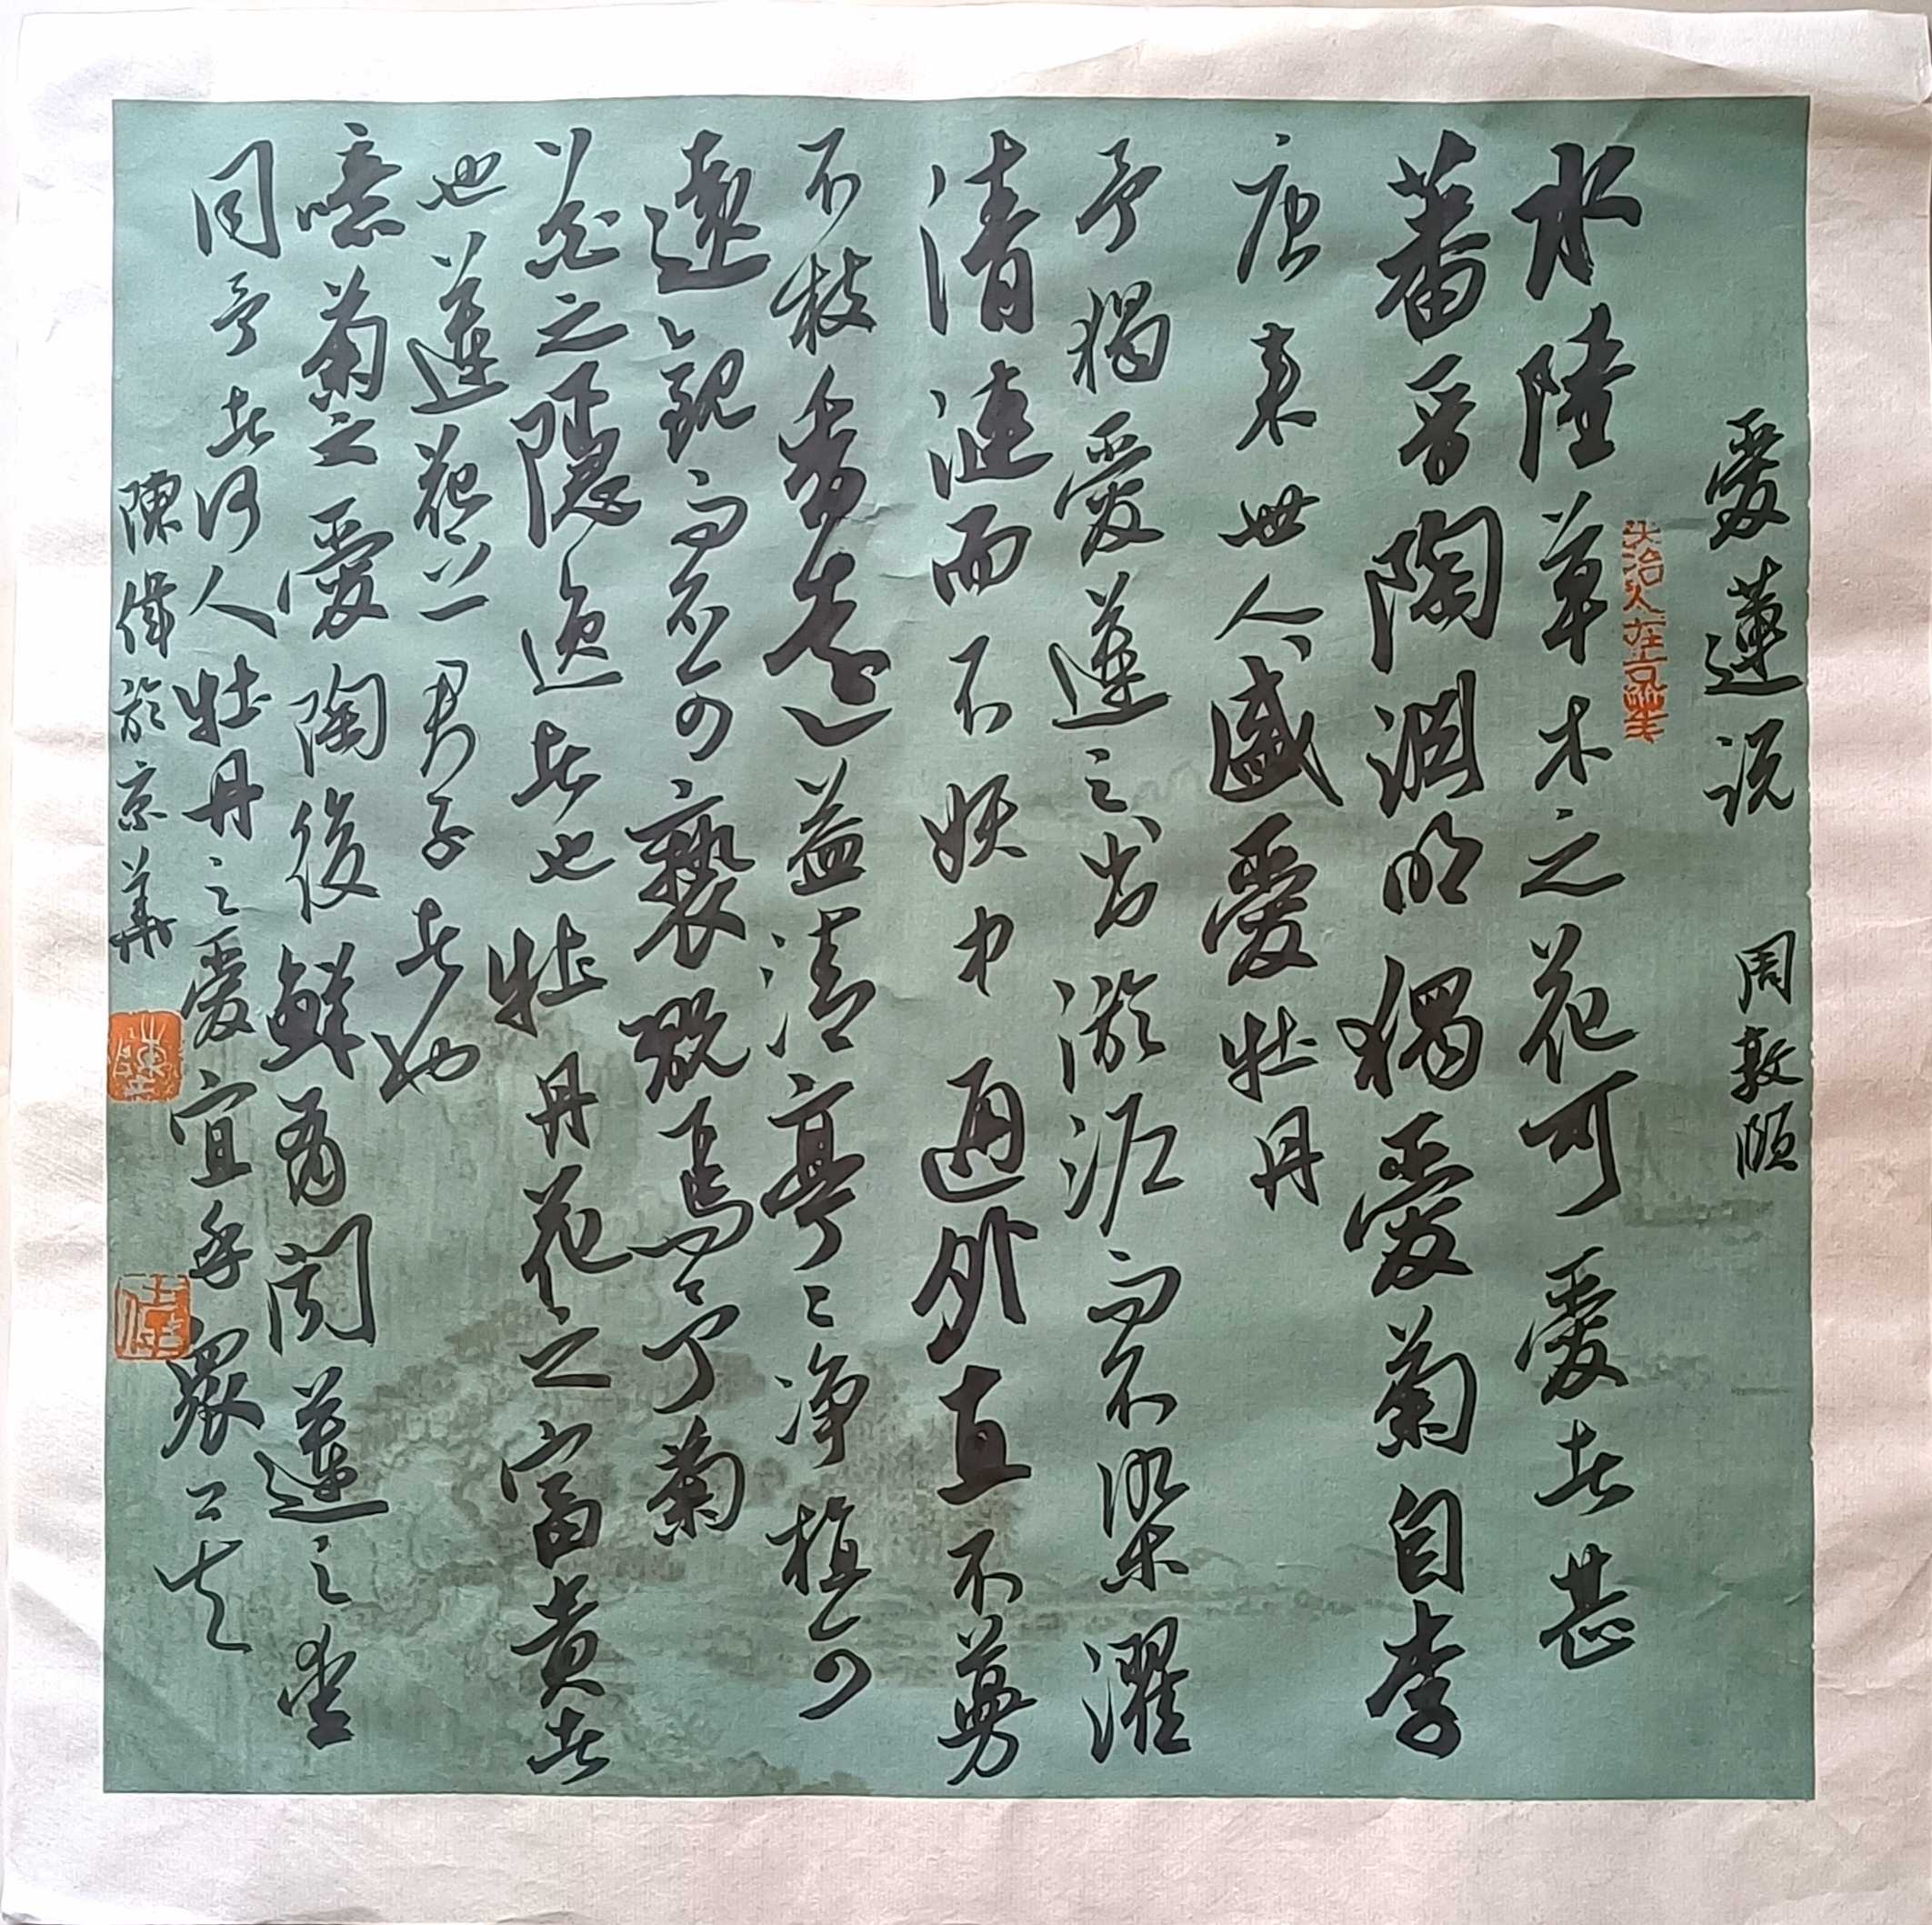 愛蓮说 周敦颐
水陸草木之花可愛者甚
蕃晋陶淵明獨愛菊自李
唐来世人盛愛牡丹
予獨愛蓮之出淤泥而不染濯
清漣而不妖中通外直不蔓
不枝香遠益清亭々净植可
遠觀而不可褻玩焉予菊
花之隱逸者也牡丹花之富貴者
也蓮花之君子者也
噫菊之愛陶後鮮有闻蓮之愛
同予者何人牡丹之愛宜乎衆矣
陳偉於京華